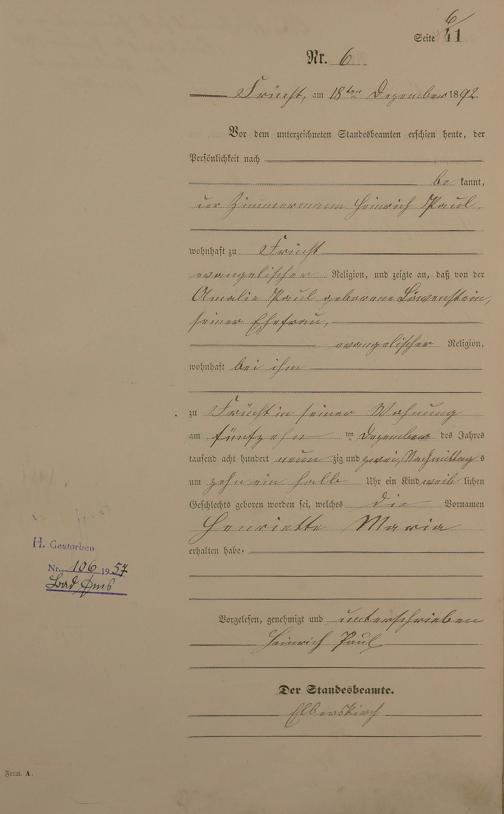 6
Seite 41
Nr. 6
Frücht, am 18ten Dezember 1892
Vor dem unterzeichneten Standesbeamten erschien heute, der
Persönlichkeit nach
be kannt,
der Zimmermann Heinrich Paul,
wohnhaft zu Frücht
evangelischer Religion, und zeigte an, daß von der
Amalie Paul geborene Löwenstein,
seiner Ehefrau,
evangelischer Religion,
wohnhaft bei ihm
zu Frücht in seiner Wohnung
am fünfzehn ten Dezember des Jahres
tausend acht hundert neun zig und zwei, Nachmittag s
um zehn ein halb Uhr ein Kind weib lichen
Geschlechts geboren worden sei, welches die Vornamen
Henriette Maria
erhalten habe.
H. Gestorben
Nr. 106 1957
Bad Ems
Vorgelesen, genehmigt und unterschrieben
Heinrich Paul
Der Standesbeamte.
Form. A.